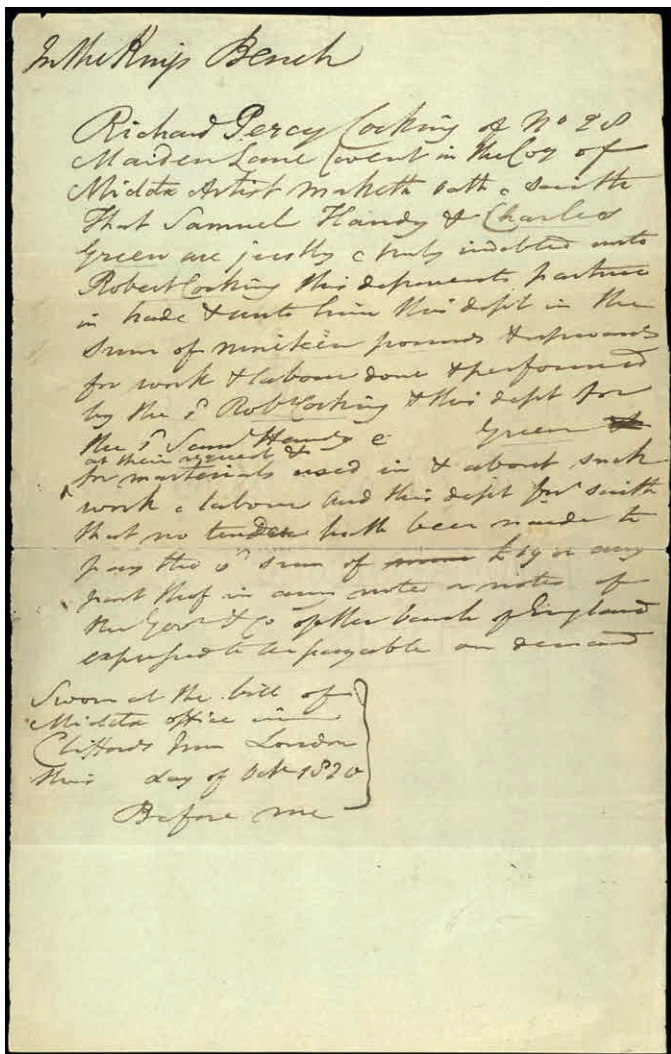 In the Kings Bench
Richard Percy Cocking of No 28
Maiden Lane Covent in the Coy of
Middx Artist maketh oath & saith
That Samuel Handy & Charles
Green are justly & truly indebted unto
Robert Cocking this deponents partner
in trade & unto him this dept in the
Sum of nineteen pounds & upwards
for work & labour done & performed
by the sd Robt Cocking & this dept for
the sd Saml Handy & Green
at their request &
for materials used in & about such
work & labour and this dept furr saith
that no tender hath been made to
pay the sd sum of £19 or any
part thof in any note or notes of
the Govr & Co of the bank of England
expressed to be payable on demand
Sworn at the bill of
Middx office in
Cliffords Inn London
this day of Octr 1820
Before me